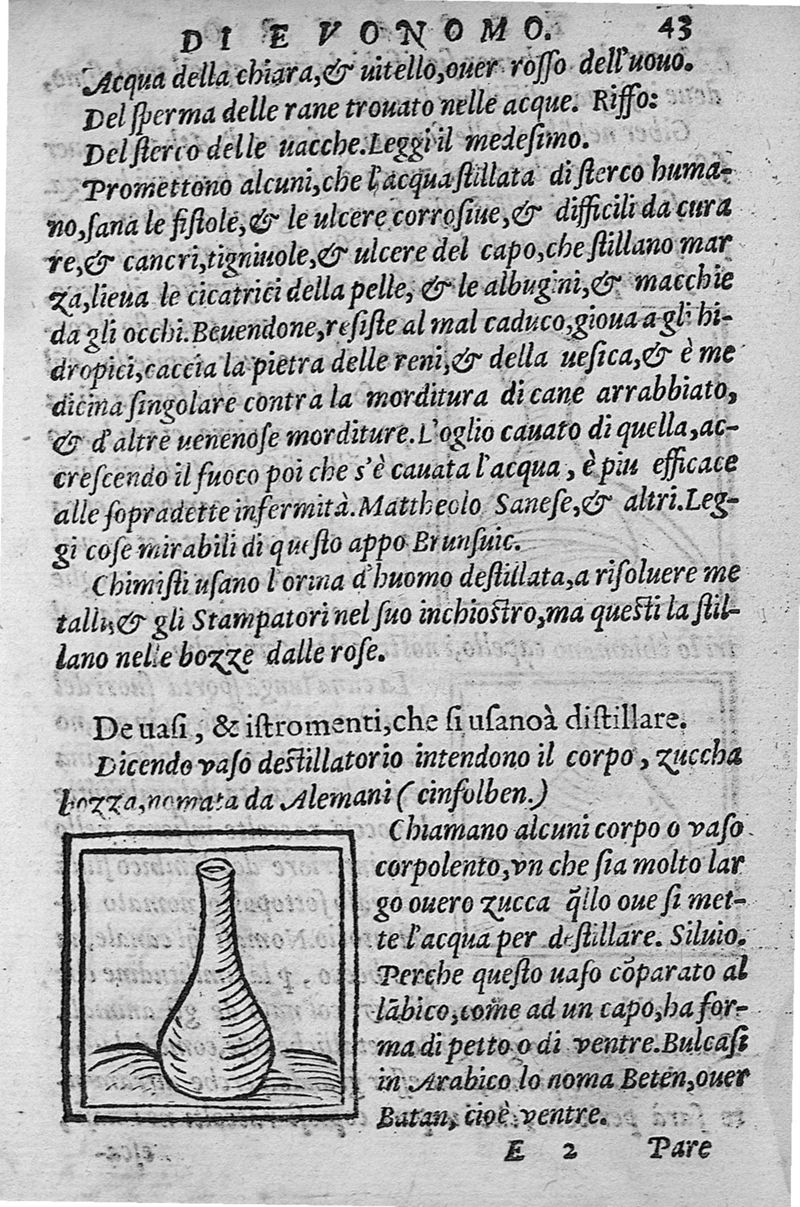 DI EVONOMO. 43
Acqua della chiara,& uitello,ouer rosso dell'uouo.
Del sperma delle rane trouato nelle acque. Riffo:
Del sterco delle uacche.Leggi il medesimo.
Promettono alcuni,che l'acqua stillata di sterco huma-
no,sana le fistole,& le ulcere corrosiue,& difficili da cura
re,& cancri,tigniuole,& ulcere del capo,che stillano mar
za,lieua le cicatrici della pelle, & le albugini,& macchie
da gli occhi.Beuendone,resiste al mal caduco,gioua a gli hi-
dropici,caccia la pietra delle reni,& della uesica,& è me
dicina singolare contra la morditura di cane arrabbiato,
& d'altre uenenose morditure.L'oglio cauato di quella,ac-
crescendo il fuoco poi che s'è cauata l'acqua, è piu efficace
alle sopradette infermità.Mattheolo Sanese,& altri.Leg-
gi cose mirabili di questo appo Brunsuic.
Chimisti usano l'orina d'huomo destillata,a risoluere me
talli,& gli Stampatori nel suo inchiostro,ma questi la stil-
lano nelle bozze dalle rose.
De uasi, & istromenti,che si usanoà distillare.
Dicendo vaso destillatorio intendono il corpo, zuccha
bozza,nomata da Alemani (cinfolben.)
Chiamano alcuni corpo o vaso
corpolento,vn che sia molto lar
go ouero zucca q̃llo oue si met-
te l'acqua per destillare. Siluio.
Perche questo uaso cõparato al
lãbico,come ad un capo,ha for-
ma di petto o di ventre.Bulcasi
in Arabico lo noma Beten,ouer
Batan, cioè ventre.
E 2 Pare